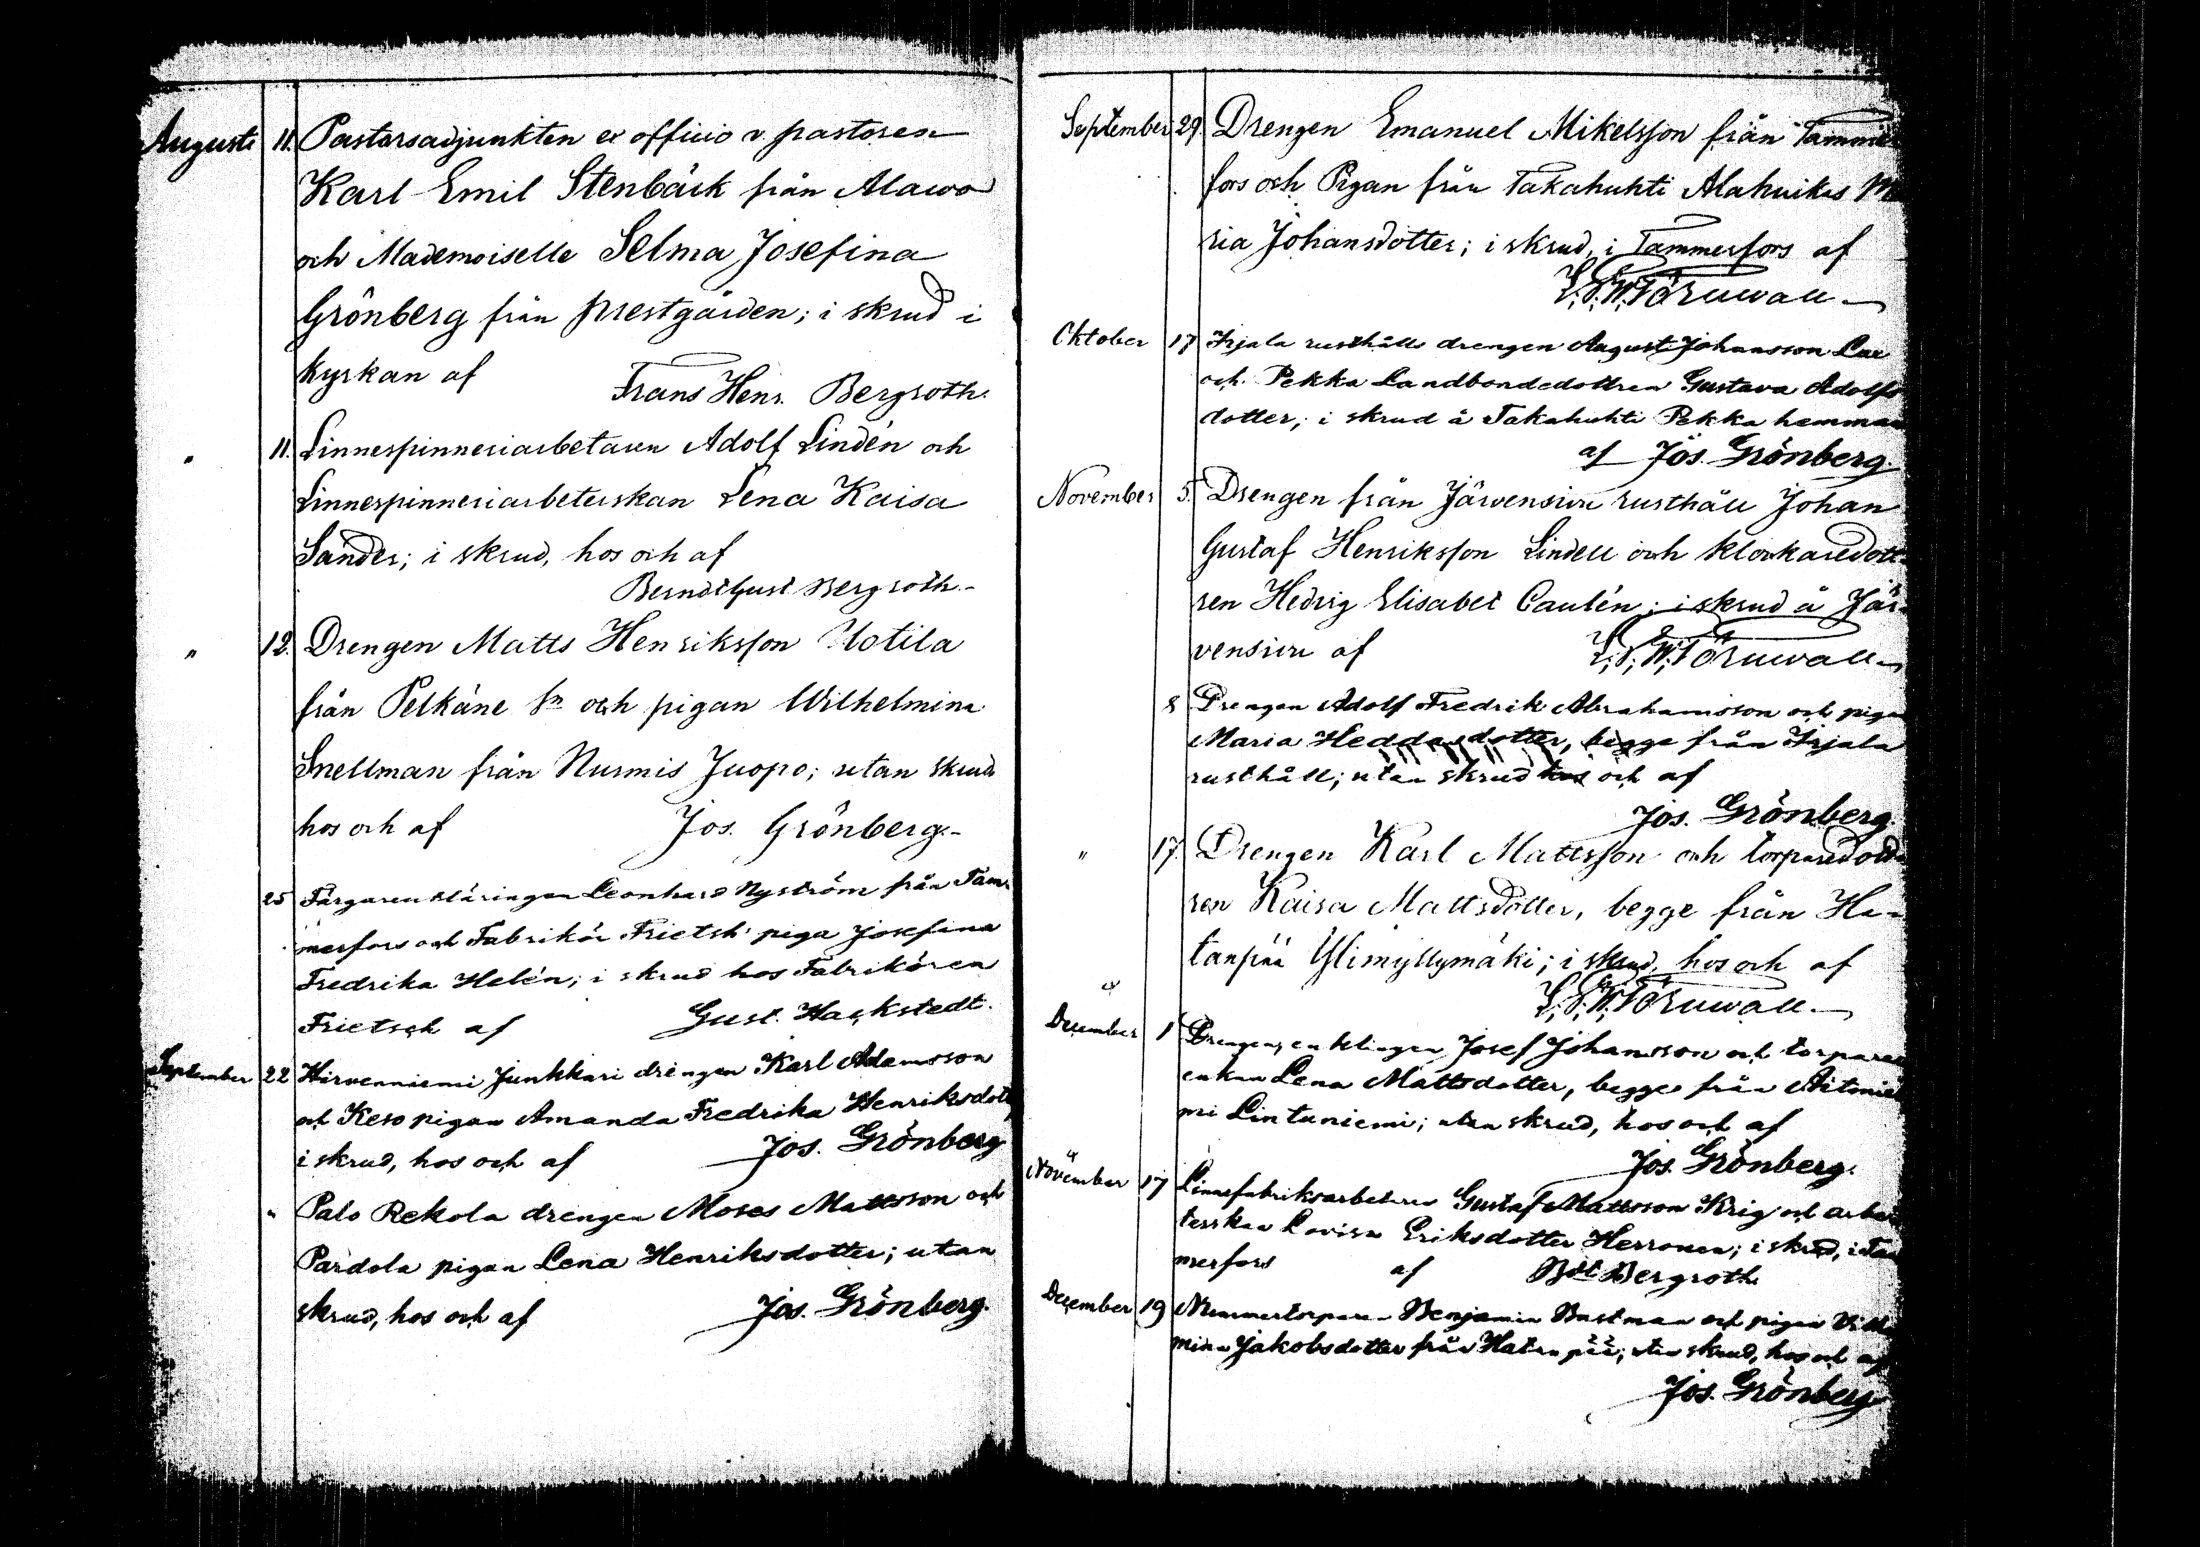 Augusti 11. Pastorsadjunkten ex officio v. pastoren
Karl Emil Stenbäck från Alawo
och Mademoiselle Selma Josefina
Grönberg från prestgården; i skrud i
kyrkan af Frans Henr. Bergroth.
" 11. Linnespinneriarbetaren Adolf Lindén och
Linnespinneriarbeterskan Lena Kaisa
Sander; i skrud, hos och af
Berndt Gust Bergroth.-
" 12. Drengen Matts Henriksson Uotila
från Pelkäne sn och pigan Wilhelmina
Snellman från Nurmis Juopo; utan skrud
hos och af Jos. Grönberg.-
25 Färgareukläringen Leonhard Nyström från Tam-
merfors och Fabrikör Frietsh piga Josefina
Fredrika Helén; i skrud hos Fabrikören
Frietsch af Gust. Hackstedt.
September 22 Hirvenniemi Junkkari drengen Karl Adamsson
och Keso pigan Amanda Fredrika Henriksdott
i skrud, hos och af Jos. Grönberg
" Palo Rekola drengen Moses Mattsson och
Pardola pigan Lena Henriksdotter; utan
skrud, hos och af Jos. Grönberg.
September 29. Drengen Emanuel Mikelsson från Tammer
fors och Pigan från Takahuhti Alahuikas Ma
ria Johansdotter; i skrud, i Tammerfors af
Törnwall
Oktober 17 Irjala rusthålls drengen August Johansson
och Pekka Landbondedottren Gustava Adolfs
dotter; i skrud å Takahuhti Pekka hemman
af Jos. Grönberg.
November 5. Drengen från Järvensivu rusthåll Johan
Gustaf Henriksson Lindell och klockaredott-
ren Hedvig Elisabet Caulén; i skrud å Jär-
vensivu af Törnwall
8 Drengen Adolf Fredrik Abrahamsson och pigan
Maria Heddasdotter, begge från Irjala
rusthåll; utan skrud hos och af
Jos. Grönberg.
" 17. Drengen Karl Mattsson och torparedott
ren Kaisa Mattsdotter, begge från Ha-
tanpää Ylimyllymäki; i skrud, hos och af
Törnwall
December 1 Drengenkeenklingen Josef Johansson och torpare
enkan Lena Mattsdotter, begge från Aitonie
mi Lintuniemi; utan skrud, hos och af
Jos. Grönberg.
November 17 Linnefabriksarbetaren Gustaf Mattsson Krig och arbe
terskan Lovisa Eriksdotter Herronen; i skrud, i Tam
merfors af Bdt Bergroth
December 19 Benjamin Bastman och pigan
mina Jakobsdotter från Hatanpää; utan skrud, hos och af
Jos. Grönberg